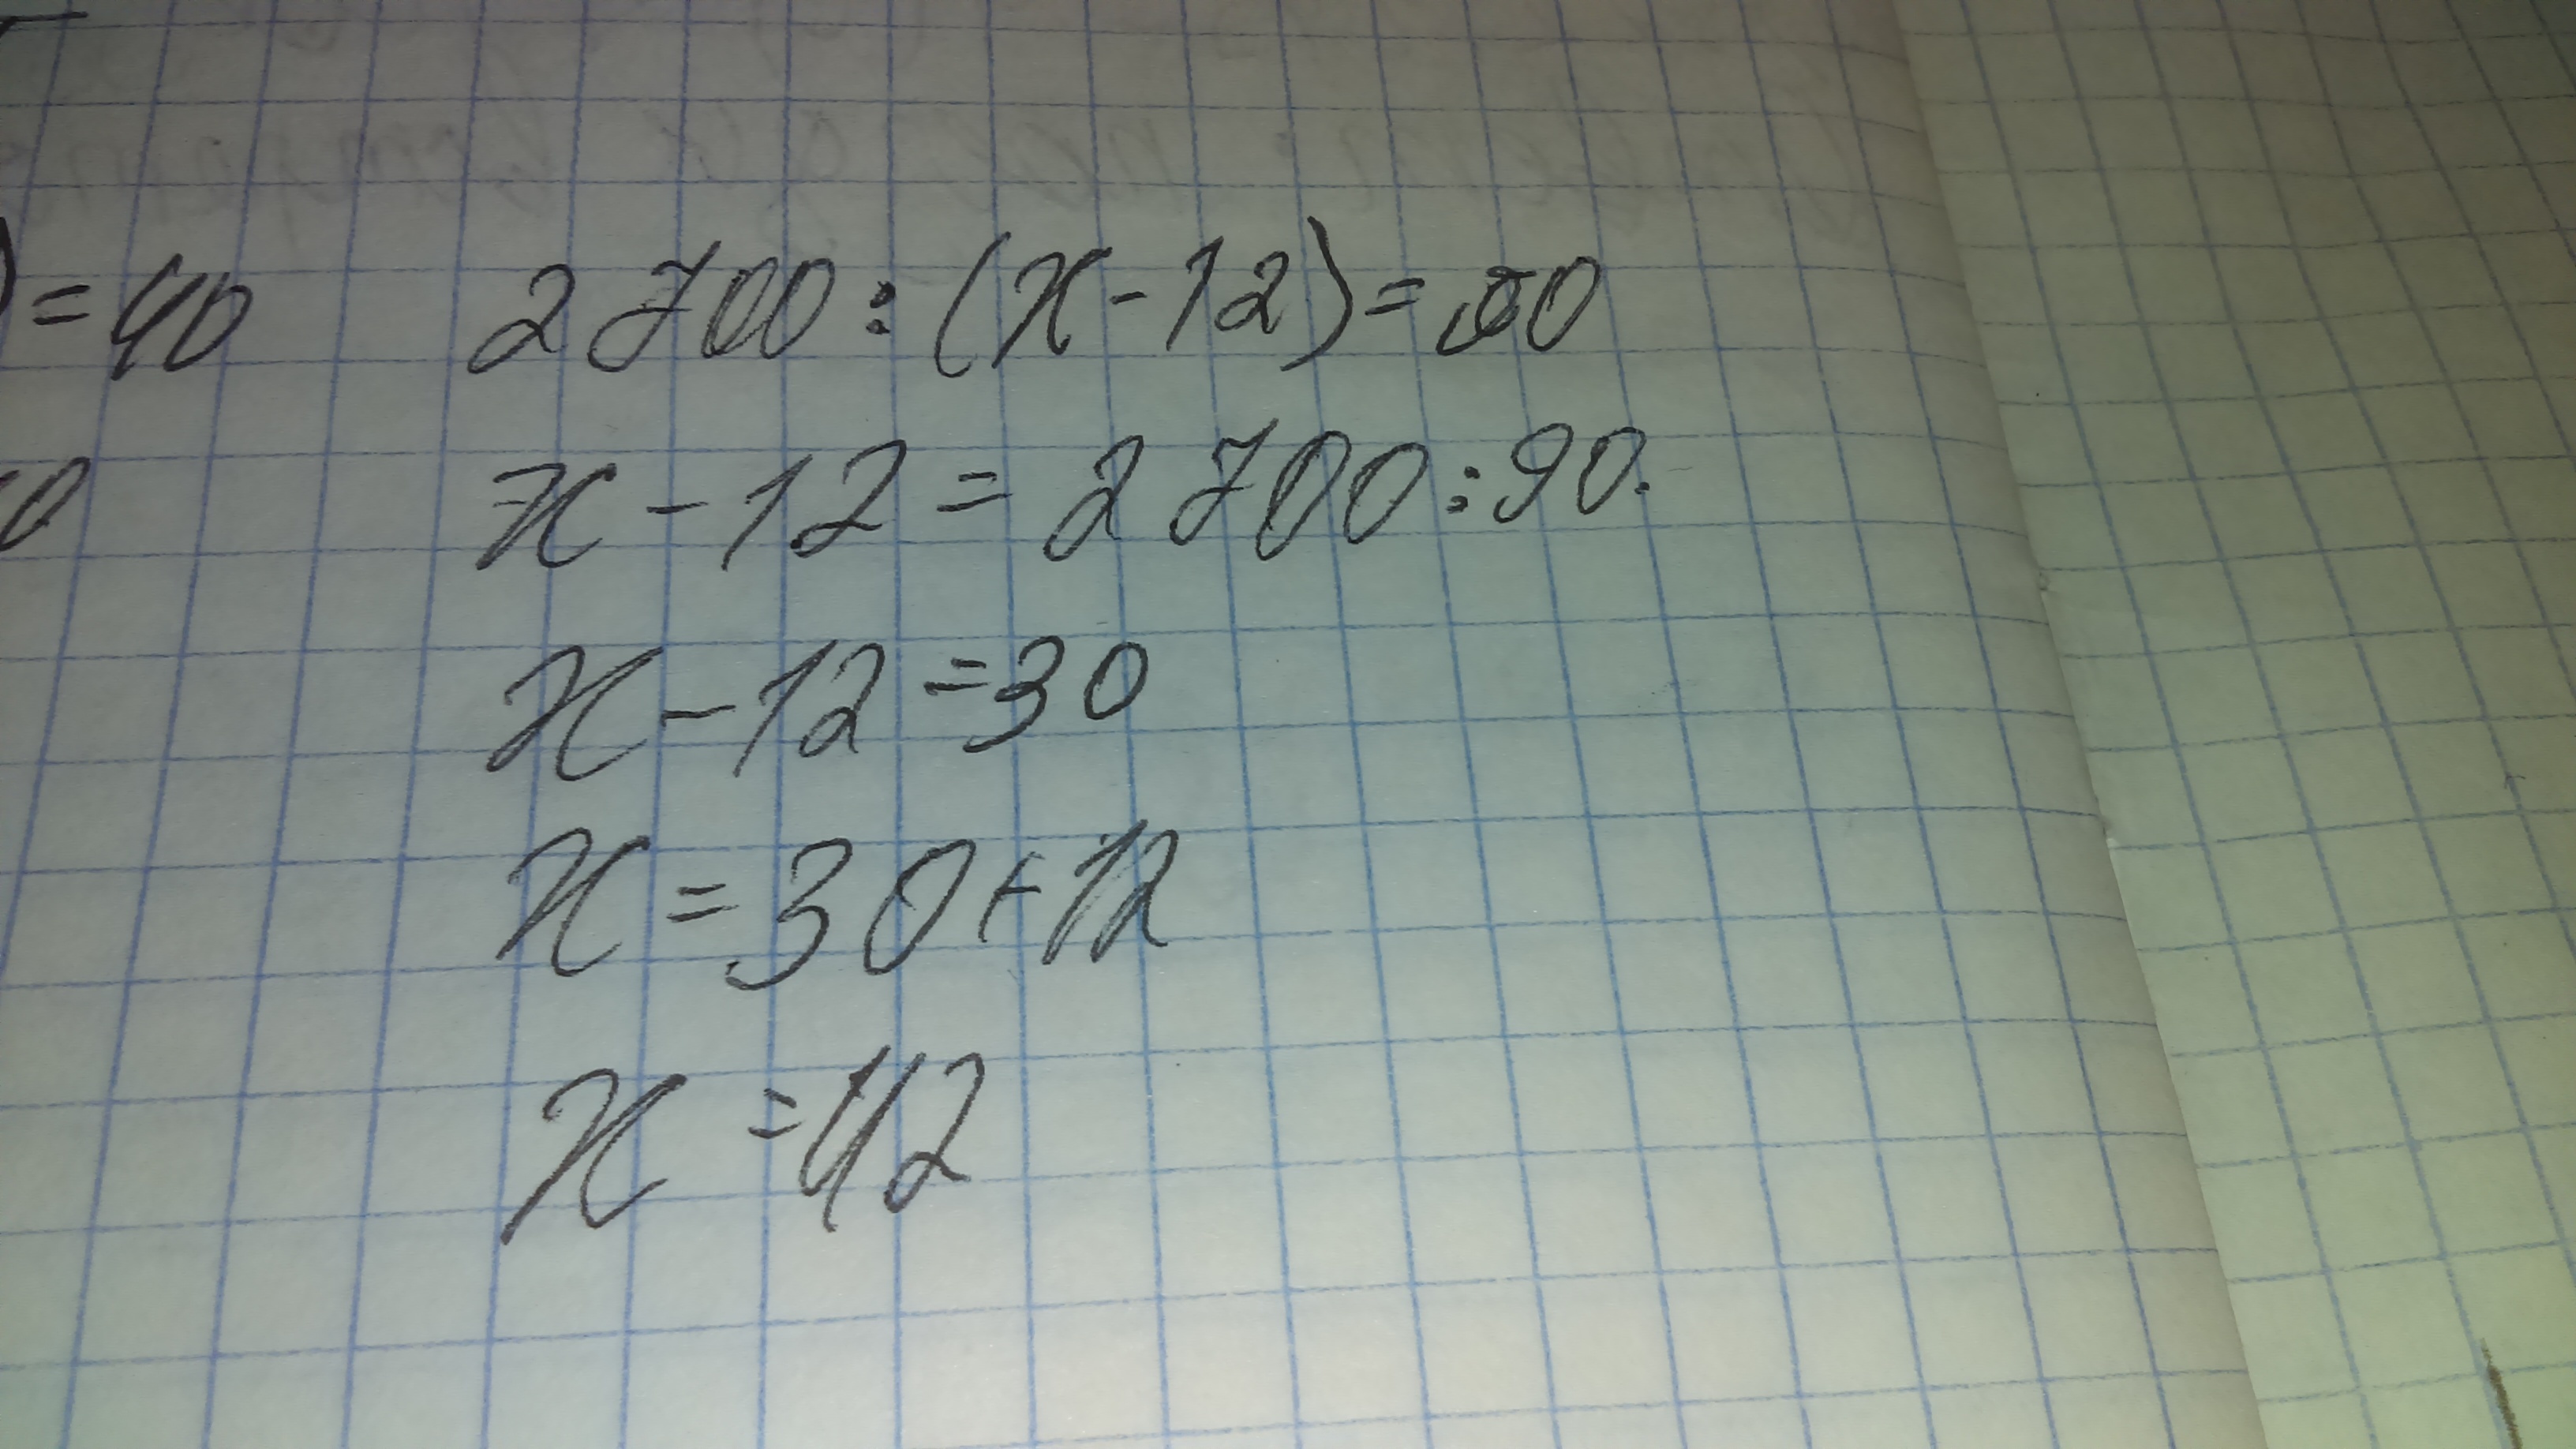 ) = 40
2700 : (x - 12) = 90
0
x - 12 = 2700 : 90.
x - 12 = 30
x = 30 + 12
x = 42